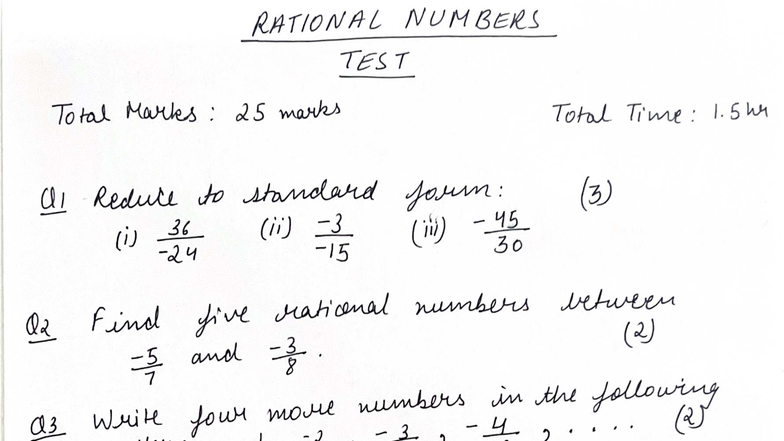 RATIONAL NUMBERS
TEST
Total Marks: 25 marks Total Time: 1.5hr
Q1 Reduce to standard form: (3)
(i) 36/-24 (ii) -3/-15 (iii) -45/30
Q2 Find five rational numbers between (2)
-5/7 and -3/8.
Q3 Write four more numbers in the following (2)